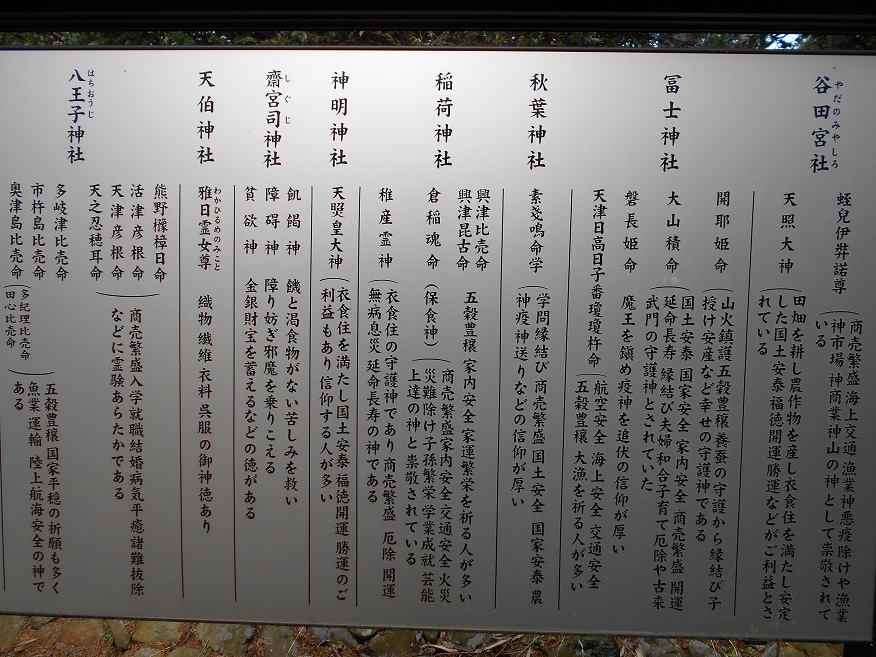 谷田宮社
やだのみやしろ
蛭兒伊弉諾尊
商売繁盛 海上交通 漁業神悪疫除けや漁業
神市場 神商業神山の神として崇敬されて
いる
天照大神
田畑を耕し農作物を産し衣食住を満たし安定
した国土安泰福徳開運勝運などがご利益とさ
れている
冨士神社
開耶姫命
山火鎮護五穀豊穣養蚕の守護から縁結び子
授け安産など幸せの守護神である
大山積命
国土安泰 国家安全 家内安全 商売繁盛 開運
延命長寿 縁結び夫婦和合子育て厄除や古来
武門の守護神とされていた
磐長姫命
魔王を鎮め疫神を追伏の信仰が厚い
天津日高日子番瓊瓊杵命
航空安全 海上安全 交通安全
五穀豊穣 大漁を祈る人が多い
秋葉神社
素戔鳴命学
学問縁結び 商売繁盛 国土安全 国家安泰 農
神疫神送りなどの信仰が厚い
稲荷神社
興津比売命
興津昆古命
五穀豊穣 家内安全 家運繁栄を祈る人が多い
倉稲魂命
(保食神)
商売繁盛家内安全 交通安全 火災
災難除け子孫繁栄 学業成就 芸能
上達の神と崇敬されている
稚産霊神
衣食住の守護神であり 商売繁盛 厄除 開運
無病息災 延命長寿の神である
神明神社
天煚皇大神
衣食住を満たし国土安泰 福徳開運 勝運のご
利益もあり信仰する人が多い
齋宮司神社
しぐじ
飢餲神
饑と渇食物がない苦しみを救い
障碍神
障り妨ぎ邪魔を乗りこえる
貧欲神
金銀財宝を蓄えるなどの徳がある
天伯神社
雅日霊女尊
わかひるめのみこと
織物 繊維 衣料 呉服の御神徳あり
八王子神社
はちおうじ
熊野檪樟日命
活津彦根命
天津彦根命
天之忍穂耳命
商売繁盛入学就職結婚病気平癒諸難抜除
などに霊験あらたかである
多岐津比売命
市杵島比売命
奥津島比売命
(多紀理比売命
田心比売命
五穀豊穣 国家平穏の祈願も多く
漁業 運輸 陸上航海安全の神で
ある